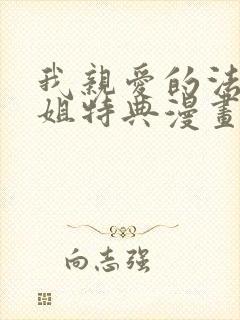 我親愛的法
姐特典漫畫
向志强